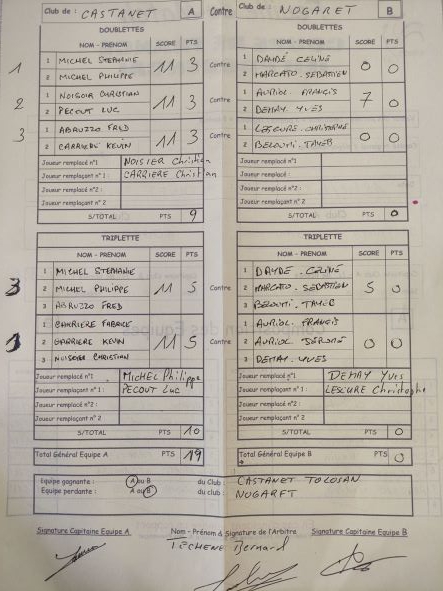 Club de : CASTANET A Contre Club de : NOGARET B
DOUBLETTES DOUBLETTES
NOM - PRENOM SCORE PTS NOM - PRENOM SCORE PTS
1 1 MICHEL STEPHANIE 11 3 Contre 1 DAYDÉ CELINE 0 0
2 MICHEL PHILIPPE 2 MARCATO SEBASTIEN
2 1 NOISOIR CHRISTIAN 11 3 Contre 1 AURIOL FRANCIS 7 0
2 PECOUT LUC 2 DEMAY YVES
3 1 ABRUZZO FRED 11 3 Contre 1 LESCURE CHRISTOPHE 0 0
2 CARRIERE KEVIN 2 BELOUMI TAYEB
Joueur remplacé n°1 NOISIER Christian Joueur remplacé n°1
Joueur remplaçant n°1 : CARRIERE Christian Joueur remplaçant :
Joueur remplacé n°2 : Joueur remplacé n°2 :
Joueur remplaçant n°2 Joueur remplaçant n°2
S/TOTAL PTS 9 S/TOTAL PTS 0
TRIPLETTE TRIPLETTE
NOM - PRENOM SCORE PTS NOM - PRENOM SCORE PTS
1 MICHEL STEPHANIE 1 DAYDE . CELINE
3 2 MICHEL PHILIPPE 11 5 Contre 2 MARCATO . SEBASTIEN 5 0
3 ABRUZZO FRED 3 BELOUMI . TAYEB
1 CARRIERE FABRICE 1 AURIOL . FRANCIS
1 2 CARRIERE KEVIN 11 5 Contre 2 AURIOL JEROME 0 0
3 NOISOIR CHRISTIAN 3 DEMAY . YVES
Joueur remplacé n°1 MICHEL Philippe Joueur remplacé n°1 DEMAY Yves
Joueur remplaçant n°1 : PECOUT Luc Joueur remplaçant n°1 : LESCURE Christophe
Joueur remplacé n°2 : Joueur remplacé n°2 :
Joueur remplaçant n°2 Joueur remplaçant n°2
S/TOTAL PTS 10 S/TOTAL PTS 0
Total Général Equipe A PTS 19 Total Général Equipe B PTS 0
Equipe gagnante : A ou B du Club : CASTANET TOLOSAN
Equipe perdante : A ou B du club : NOGARET
Signature Capitaine Equipe A Nom - Prénom & Signature de l'Arbitre Signature Capitaine Equipe B
TECHENE Bernard